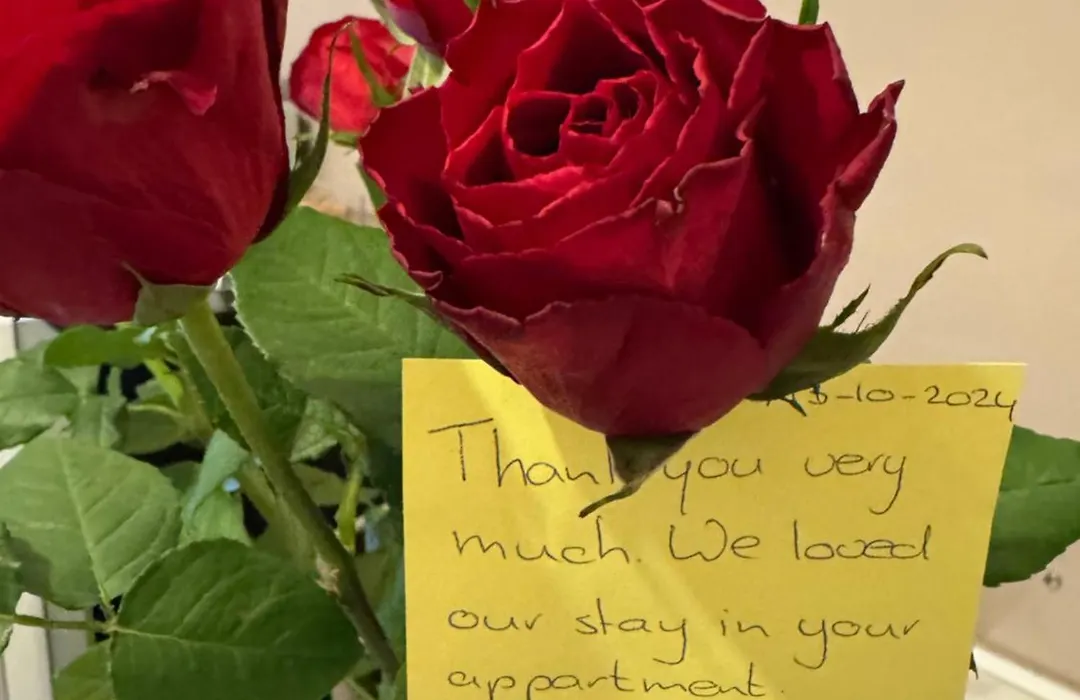 13-10-2024
Thank you very
much. We loved
our stay in your
appartment.